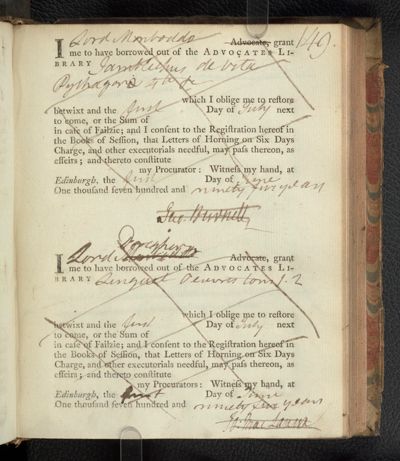 149.
I Lord Monboddo Advocate, grant
me to have borrowed out of the ADVOCATES LI-
BRARY Jamblichus de vita
Pythagorae 4to
betwixt and the first which I oblige me to restore
Day of July next
to come, or the Sum of
in case of Failzie; and I consent to the Registration hereof in
the Books of Session, that Letters of Horning on Six Days
Charge, and other executorials needful, may pass thereon, as
effeirs; and thereto constitute
my Procurator: Witness my hand, at
Edinburgh, the first Day of June
One thousand seven hundred and ninety five years
Geo. Burnett
I Lord Advocate, grant
me to have borrowed out of the ADVOCATES LI-
BRARY Linguet Oeuvres tom 1. 2
which I oblige me to restore
betwixt and the first Day of July next
to come, or the Sum of
in case of Failzie; and I consent to the Registration hereof in
the Books of Session, that Letters of Horning on Six Days
Charge, and other executorials needful, may pass thereon, as
effeirs; and thereto constitute
my Procurators: Witness my hand, at
Edinburgh, the first Day of June
One thousand seven hundred and ninety five years